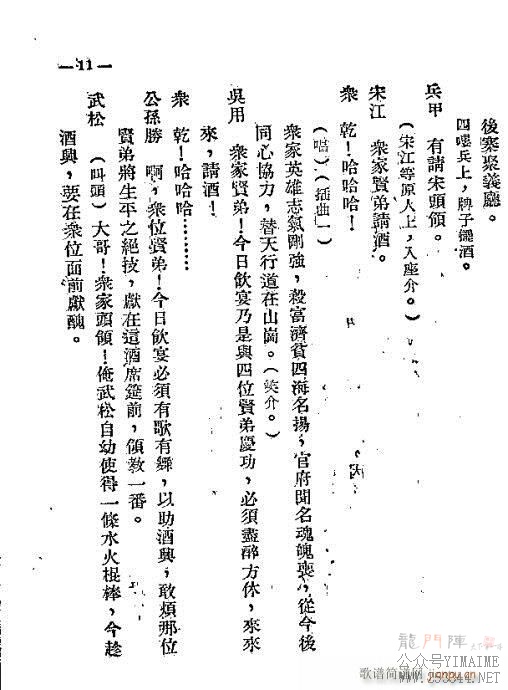 —11—
後寨聚義廳。
四嘍兵上，牌子擺酒。
兵甲　有請宋頭領。
（宋江等原人上，入座介。）
宋江　衆家賢弟請酒。
衆　乾！哈哈哈！
（唱）（插曲一）
衆家英雄志氣剛強，殺富濟貧四海名揚，官府聞名魂魄喪，從今後
同心協力，替天行道在山崗。（笑介。）
吳用　衆家賢弟！今日飲宴乃是與四位賢弟慶功，必須盡醉方休，來來
來，請酒！
衆　乾！哈哈哈………
公孫勝　啊，衆位賢弟！今日飲宴必須有歌有舞，以助酒興，敢煩那位
賢弟將生平之絕技，獻在這酒席筵前，領教一番。
武松　（叫頭）大哥！衆家頭領！俺武松自幼使得一條水火棍棒，今趁
酒興，要在衆位面前獻醜。
龍門陣
公众号YIMAIME
歌谱简谱网